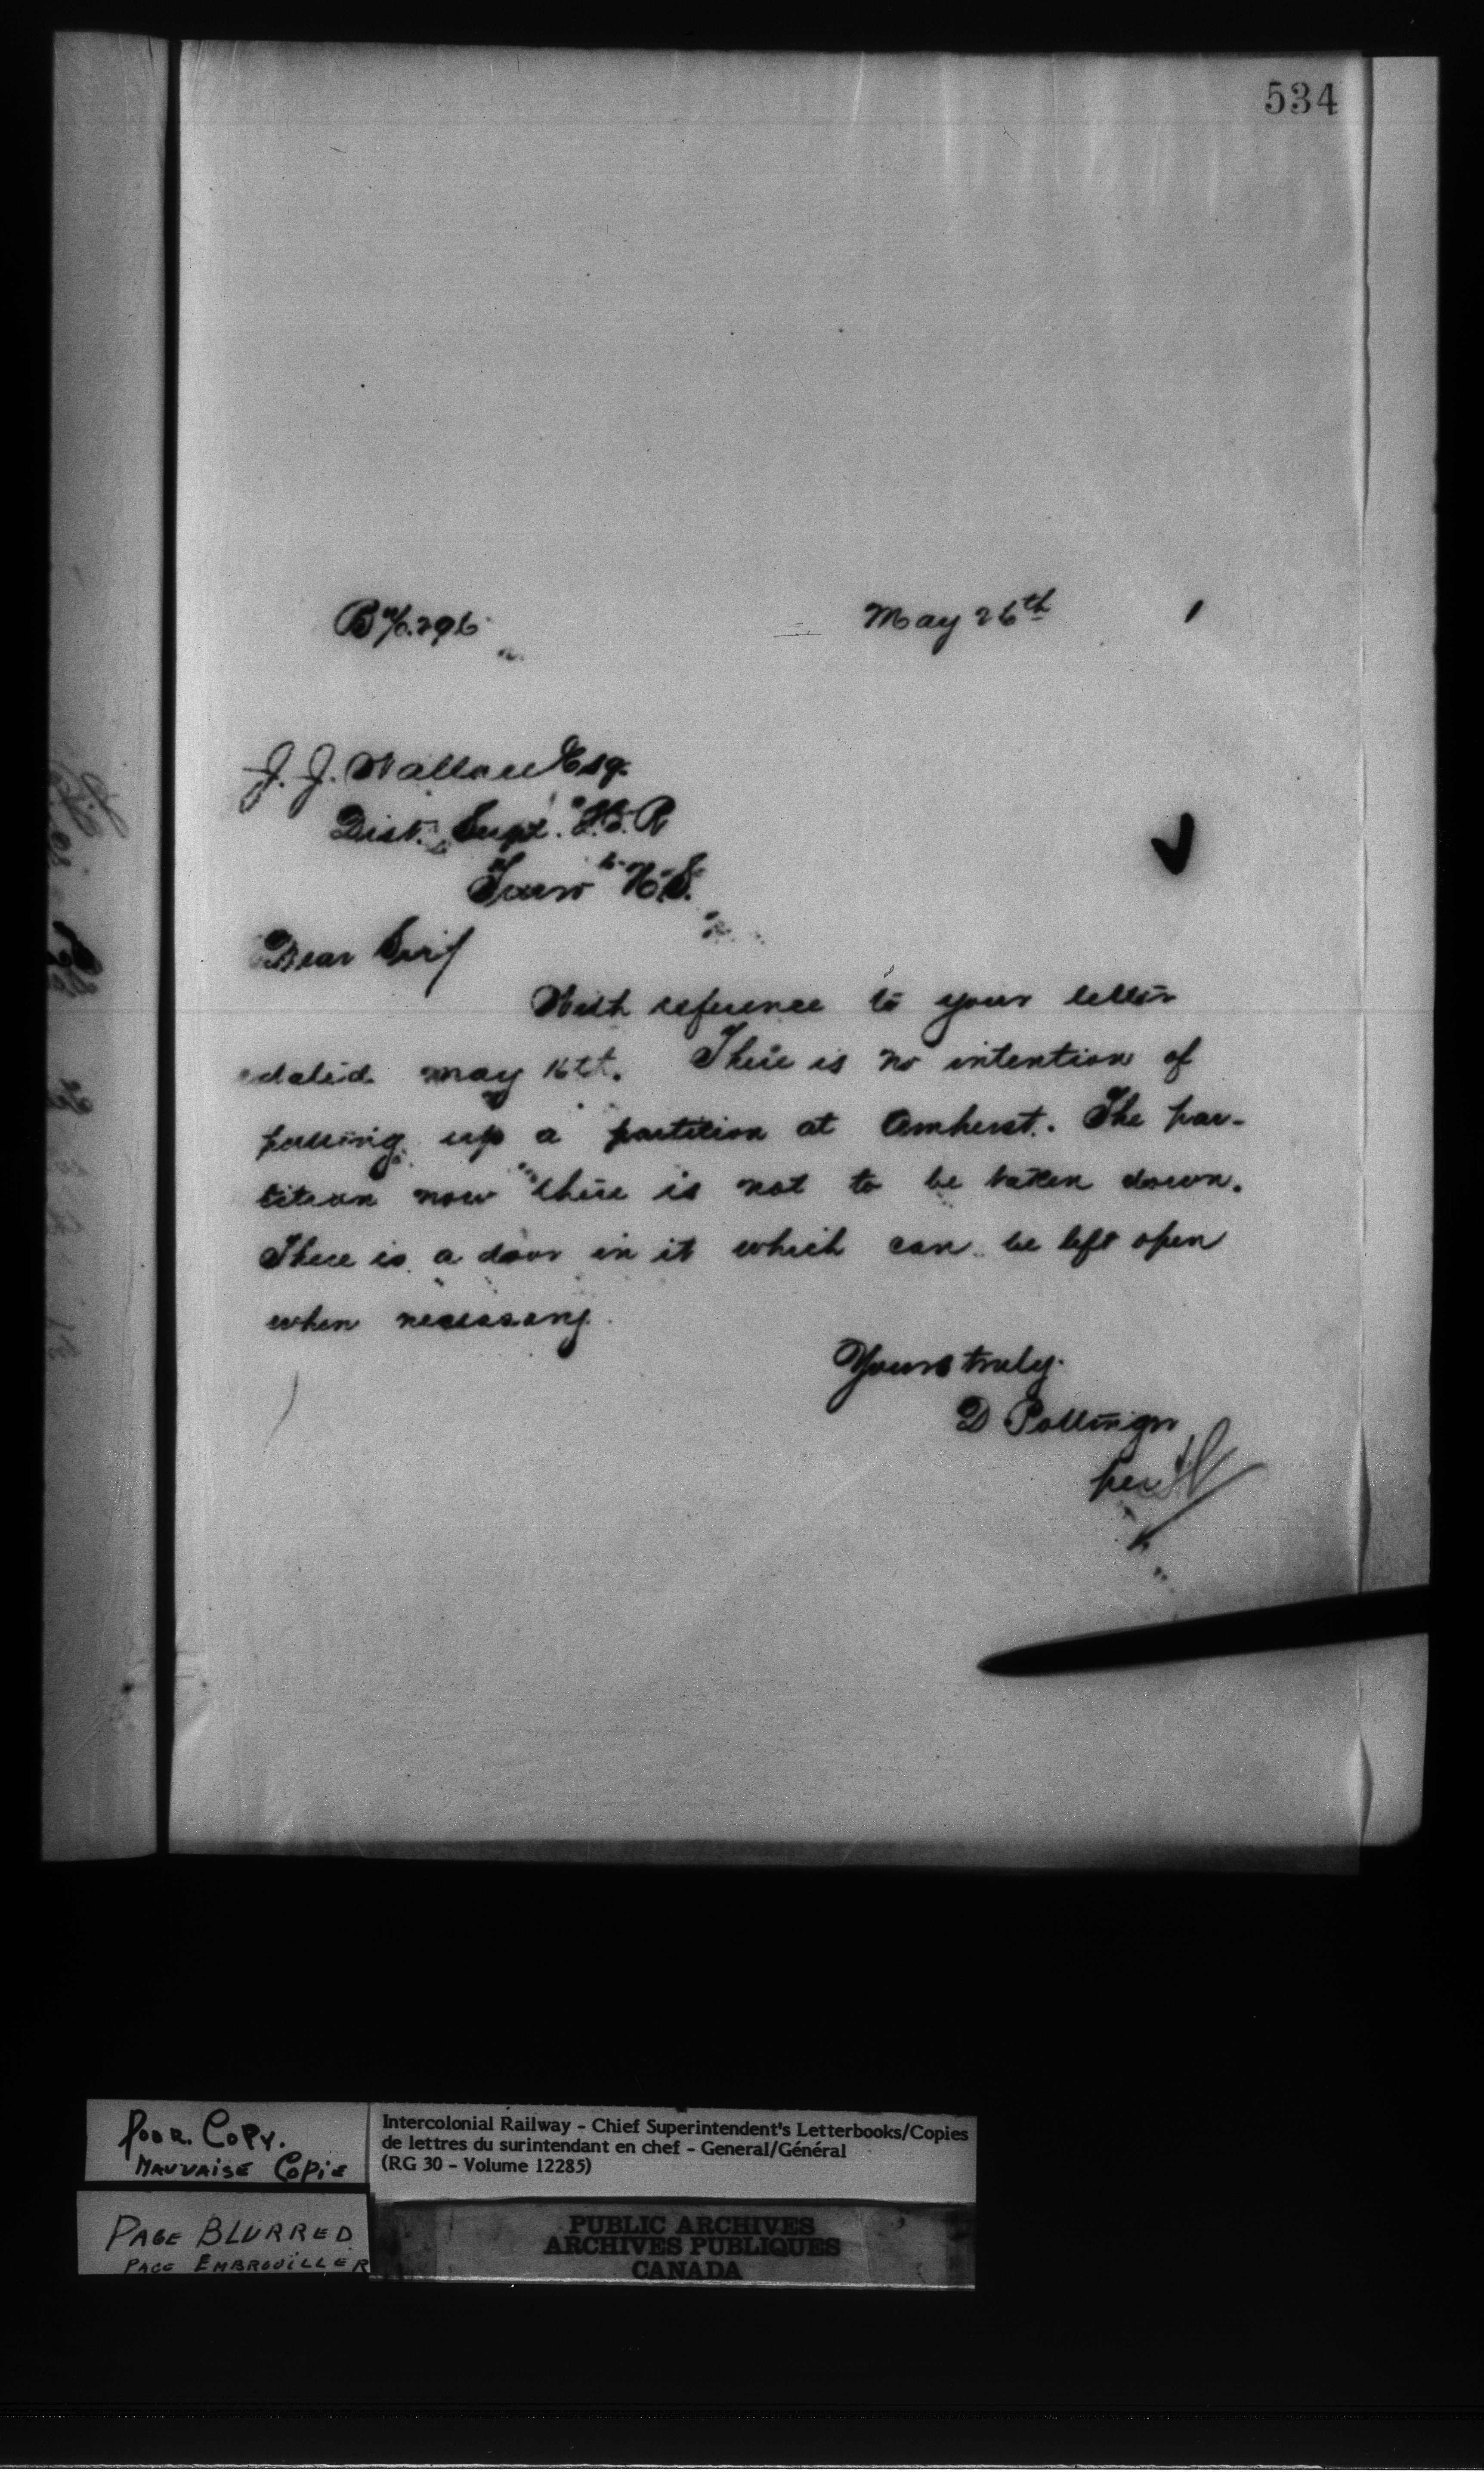 534
May 26th
J. J. Wallace Esq.
Dist. Supt. I. C. R
Truro N. S.
Dear Sir/
With reference to your letter
dated May 16th. There is no intention of
putting up a partition at Amherst. The par-
tition now there is not to be taken down.
There is a door in it which can be left open
when necessary.
Yours truly.
D Pottinger
per
Poor Copy.
Mauvaise Copie
Intercolonial Railway - Chief Superintendent's Letterbooks/Copies
de lettres du surintendant en chef - General/Général
(RG 30 - Volume 12285)
PAGE BLURRED
PAGE EMBROUILLER
PUBLIC ARCHIVES
ARCHIVES PUBLIQUES
CANADA